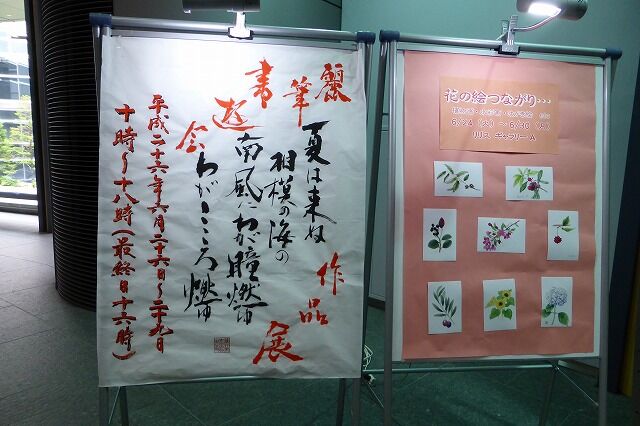 麗筆書遊会
作品展
夏は来ぬ
相模の海の
南風にわが瞳燃ゆ
わがこころ燃ゆ
平成二十六年六月二十六日〜二十九日
十時〜十八時(最終日十六時)
花の絵つながり・・・
6/24 (火) 〜 6/30 (月)
リリス ギャラリーA